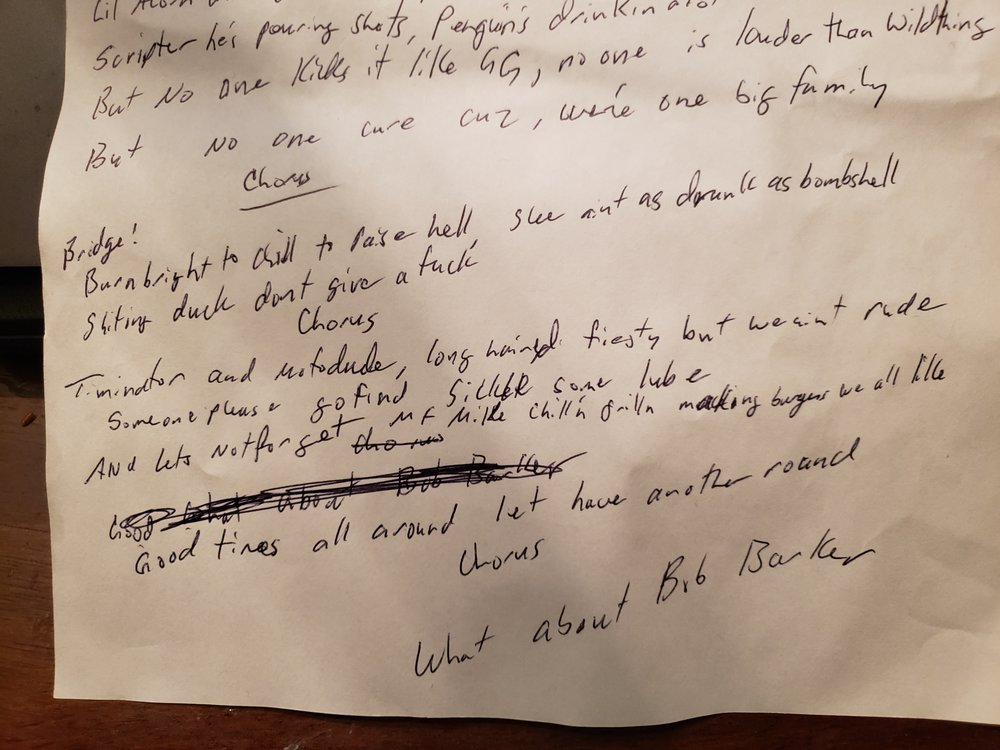 Lil Acorn
Scripter he's pouring shots, Penguin's drinkin
But No one Kicks it like GG, no one is louder than Wildthing
But No one cure cuz, we're one big family
Chorus
Bridge!
Burnbright to chill to raise hell, slee aint as drunk as bombshell
Shiting duck dont give a fuck
Chorus
Timinator and motodude, long haired fiesty but we aint rude
Someone please go find some lube
And lets Not forget MF Mike chill'n grilln making burgers we all like
Good What about Bob Barker
Good times all around let have another round
Chorus
What about Bob Barker